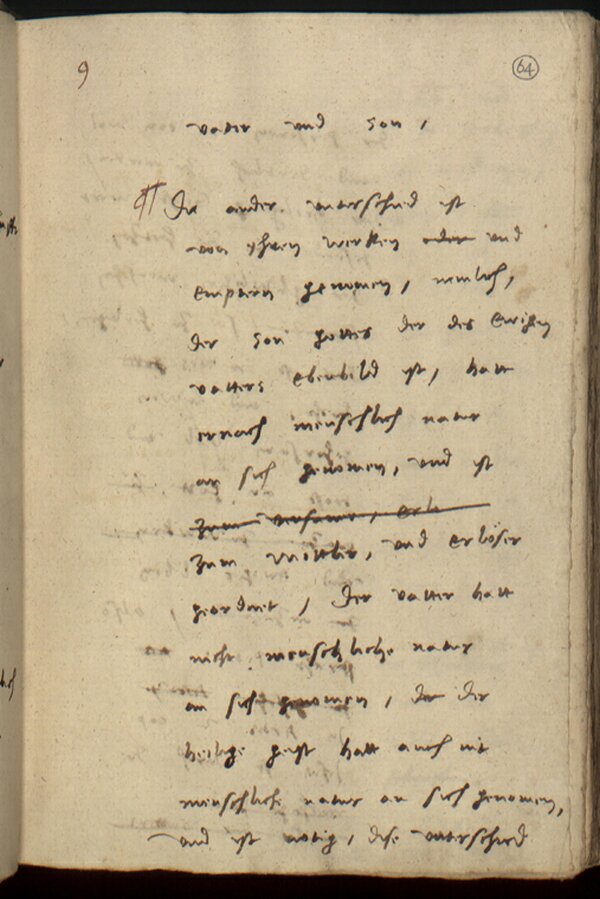 9
64
vatter und son,
¶ Der ander unterschied ist
von yhren werken oder und
emptern genomen, nemlich,
der son gottes der des ewigen
vatters ebenbild ist, hatt
ernach menschlich natur
an sich genomen, und ist
zum versuner, erlo
zum mittler, und erlöser
geordnet, Der vatter hatt
nicht menschliche natur
an sich genomen, der
heilige geist hatt auch nit
menschliche natur an sich genomen,
und ist nötig, dise unterschied